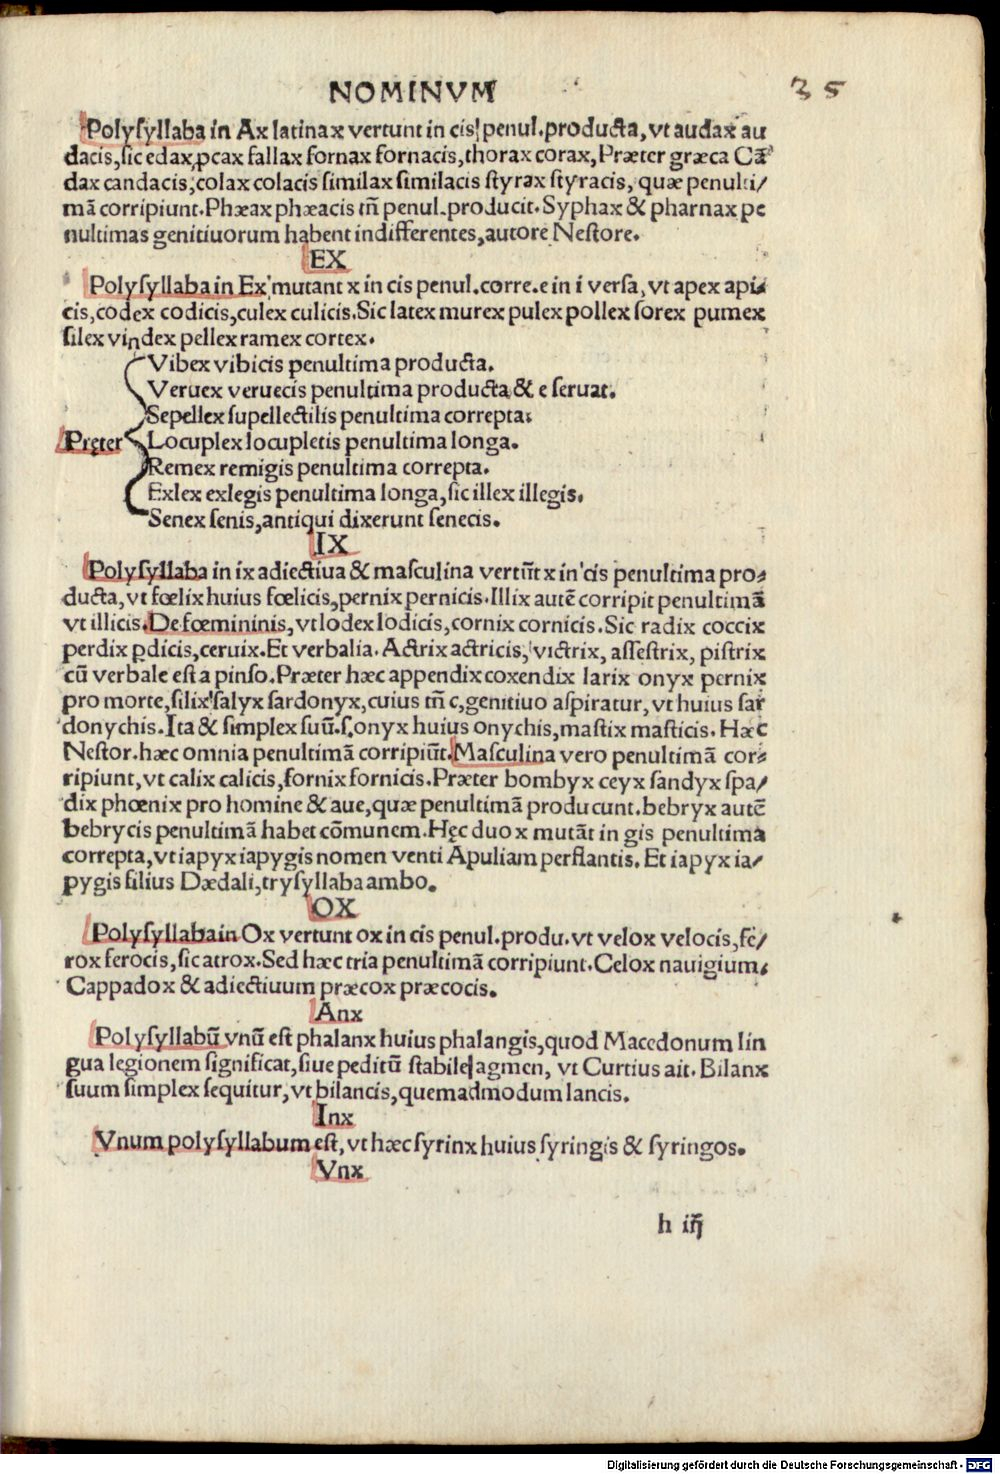 NOMINVM 35
Polyſyllaba in Ax latina x vertunt in cis penul.producta, vt audax au
dacis, ſic edax, ꝑcax fallax fornax fornacis, thorax corax, Præter græca Cā
dax candacis; colax colacis ſimilax ſimilacis ſtyrax ſtyracis, quæ penulti/
mā corripiunt. Phæax phæacis tñ penul.producit. Syphax & pharnax pe
nultimas genitiuorum habent indifferentes, autore Neſtore.
EX
Polyſyllaba in Ex mutant x in cis penul.corre.e in i verſa, vt apex api⸗
cis, codex codicis, culex culicis. Sic latex murex pulex pollex ſorex pumex
ſilex vindex pellex ramex cortex.
Vibex vibicis penultima producta.
Veruex veruecis penultima producta & e ſeruat.
Sepellex ſupellectilis penultima correpta.
Pręter Locuplex locupletis penultima longa.
Remex remigis penultima correpta.
Exlex exlegis penultima longa, ſic illex illegis.
Senex ſenis, antiqui dixerunt ſenecis.
IX
Polyſyllaba in ix adiectiua & maſculina vertūt x in cis penultima pro⸗
ducta, vt fœlix huius fœlicis, pernix pernicis. Illix autē corripit penultimā
vt illicis. De fœmininis, vt lodex lodicis, cornix cornicis. Sic radix coccix
perdix ꝑdicis, ceruix. Et verbalia. Actrix actricis, victrix, aſſeſtrix, piſtrix
cū verbale eſt a pinſo. Præter hæc appendix coxendix larix onyx pernix
pro morte, ſilix ſalyx ſardonyx, cuius tñ c, genitiuo aſpiratur, vt huius ſar
donychis. Ita & ſimplex ſuū.ſ. onyx huius onychis, maſtix maſticis. Hæc
Neſtor. hæc omnia penultimā corripiūt. Maſculina vero penultimā cor⸗
ripiunt, vt calix calicis, fornix fornicis. Præter bombyx ceyx ſandyx ſpa/
dix phœnix pro homine & aue, quæ penultimā producunt. bebryx autē
bebrycis penultimā habet cōmunem. Hęc duo x mutāt in gis penultima
correpta, vt iapyx iapygis nomen venti Apuliam perflantis. Et iapyx ia/
pygis filius Dædali, tryſyllaba ambo.
OX
Polyſyllaba in Ox vertunt ox in cis penul.produ. vt velox velocis, fe/
rox ferocis, ſic atrox. Sed hæc tria penultimā corripiunt. Celox nauigium,
Cappadox & adiectiuum præcox præcocis.
Anx
Polyſyllabū vnū eſt phalanx huius phalangis, quod Macedonum lin
gua legionem ſignificat, ſiue peditū ſtabile agmen, vt Curtius ait. Bilanx
ſuum ſimplex ſequitur, vt bilancis, quemadmodum lancis.
Inx
Vnum polyſyllabum eſt, vt hæc ſyrinx huius ſyringis & ſyringos.
Vnx
h iij
Digitalisierung gefördert durch die Deutsche Forschungsgemeinschaft - DFG